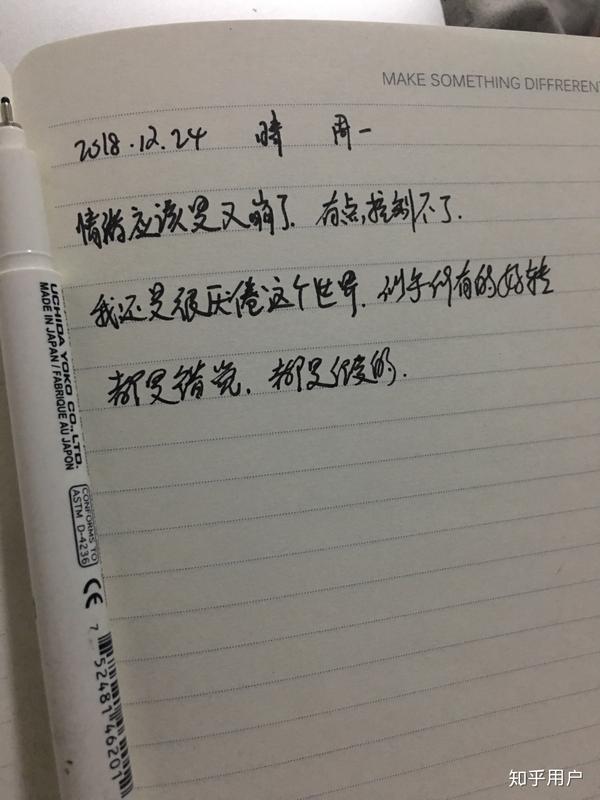 MAKE SOMETHING DIFFRERENT
2018.12.24 晴 周一
情绪应该是又崩了. 有点控制不了.
我还是很厌倦这个世界. 似乎所有的好转
都是错觉. 都是假的.
UCHIDA YOKO CO., LTD.
MADE IN JAPAN / FABRIQUE AU JAPON
CONFORMS TO
ASTM D-4236
CE
7 52481 46201
知乎用户